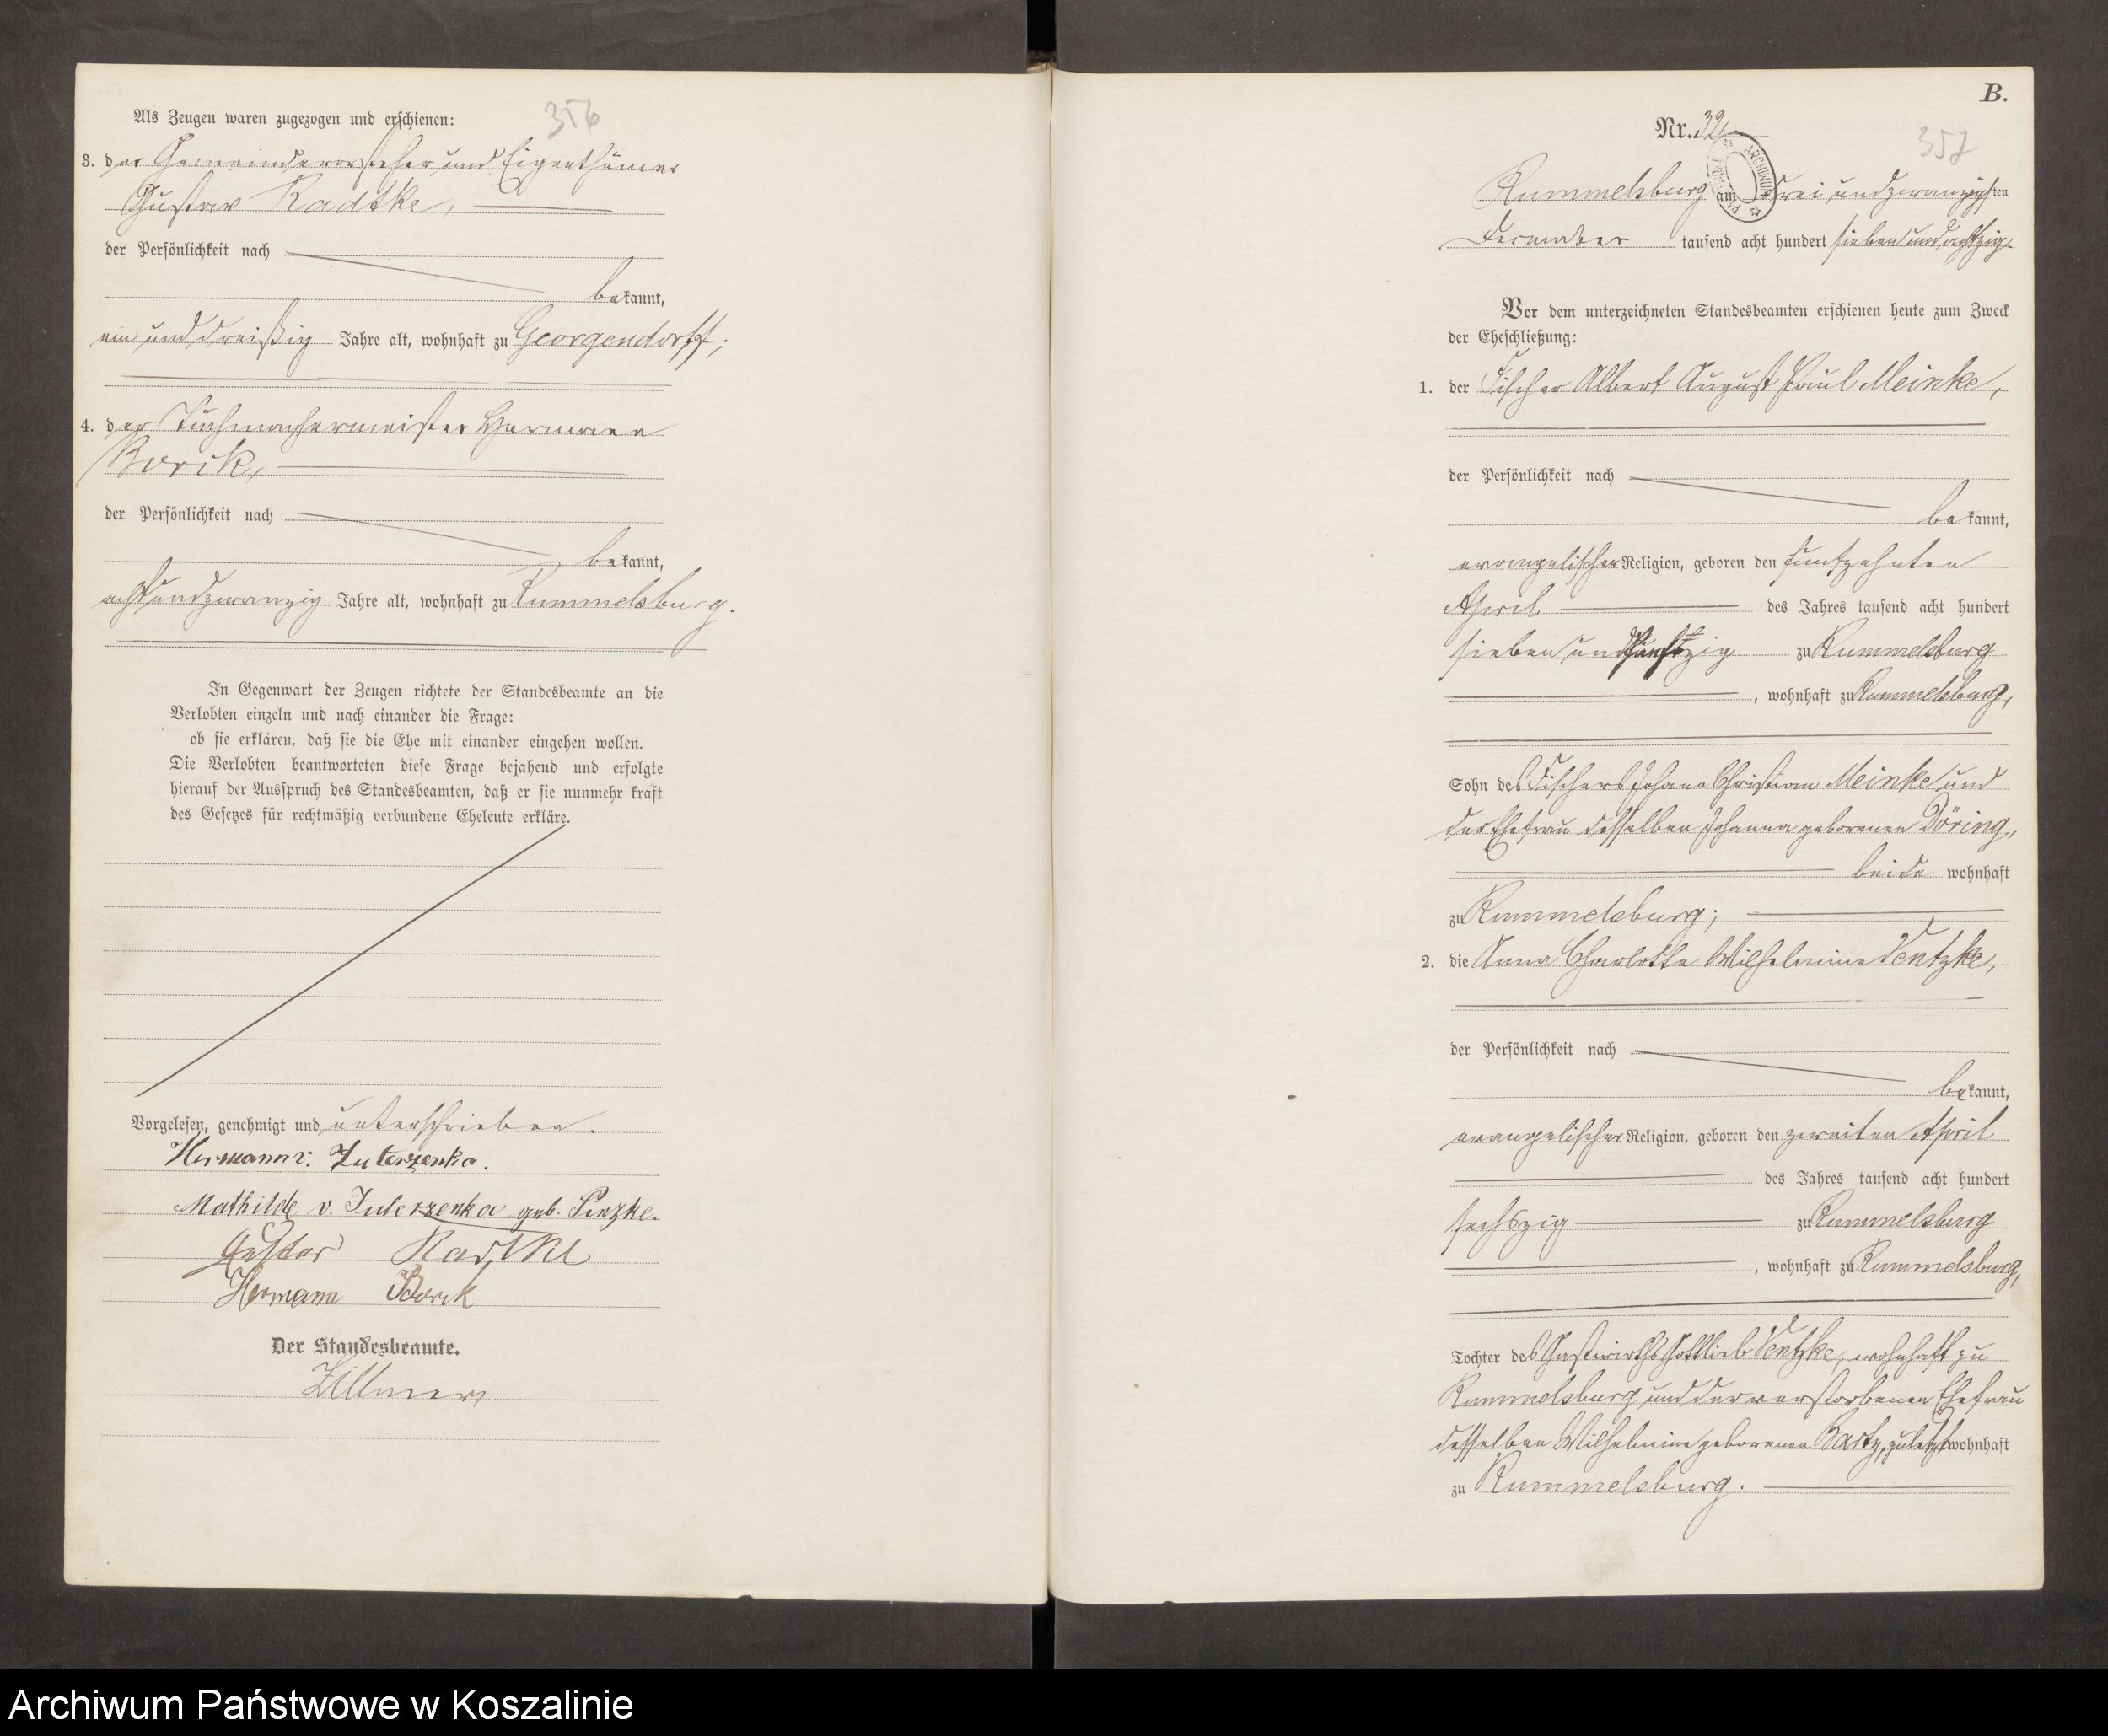 356
Als Zeugen waren zugezogen und erschienen:
3. der Gemeindevorsteher und Eigenthümer
Gustav Radtke,
der Persönlichkeit nach
bekannt,
ein und dreißig Jahre alt, wohnhaft zu Georgendorff;
4. der Tuchmachermeister Hermann
Borck,
der Persönlichkeit nach
bekannt,
achtundzwanzig Jahre alt, wohnhaft zu Rummelsburg.
In Gegenwart der Zeugen richtete der Standesbeamte an die
Verlobten einzeln und nach einander die Frage:
ob sie erklären, daß sie die Ehe mit einander eingehen wollen.
Die Verlobten beantworteten diese Frage bejahend und erfolgte
hierauf der Ausspruch des Standesbeamten, daß er sie nunmehr kraft
des Gesetzes für rechtmäßig verbundene Eheleute erkläre.
Vorgelesen, genehmigt und unterschrieben.
Hermann v. Zuterzenka.
Mathilde v. Juterzenka geb.
Gustav Radtke
Hermann Borck
Der Standesbeamte.
Zillmer
B.
Nr. 32
357
Rummelsburg am drei und zwanzigsten
December tausend acht hundert sieben und achtzig.
Vor dem unterzeichneten Standesbeamten erschienen heute zum Zweck
der Eheschließung:
1. der Fischer Albert August Paul Meinke,
der Persönlichkeit nach
bekannt,
evangelischer Religion, geboren den funfzehnten
April des Jahres tausend acht hundert
sieben und fünfzig zu Rummelsburg
, wohnhaft zu Rummelsburg,
Sohn des Fischers Johann Christian Meinke und
der Ehefrau desselben Johanna geborenen Döring,
beide wohnhaft
zu Rummelsburg;
2. die Anna Charlotte Wilhelmine Ventzke,
der Persönlichkeit nach
bekannt,
evangelischer Religion, geboren den zweiten April
des Jahres tausend acht hundert
sechszig zu Rummelsburg
, wohnhaft zu Rummelsburg,
Tochter des Gastwirths Gottlieb Ventzke, wohnhaft zu
Rummelsburg und der verstorbenen Ehefrau
desselben Wilhelmine geborenen Bartz, zuletzt wohnhaft
zu Rummelsburg.
Archiwum Państwowe w Koszalinie